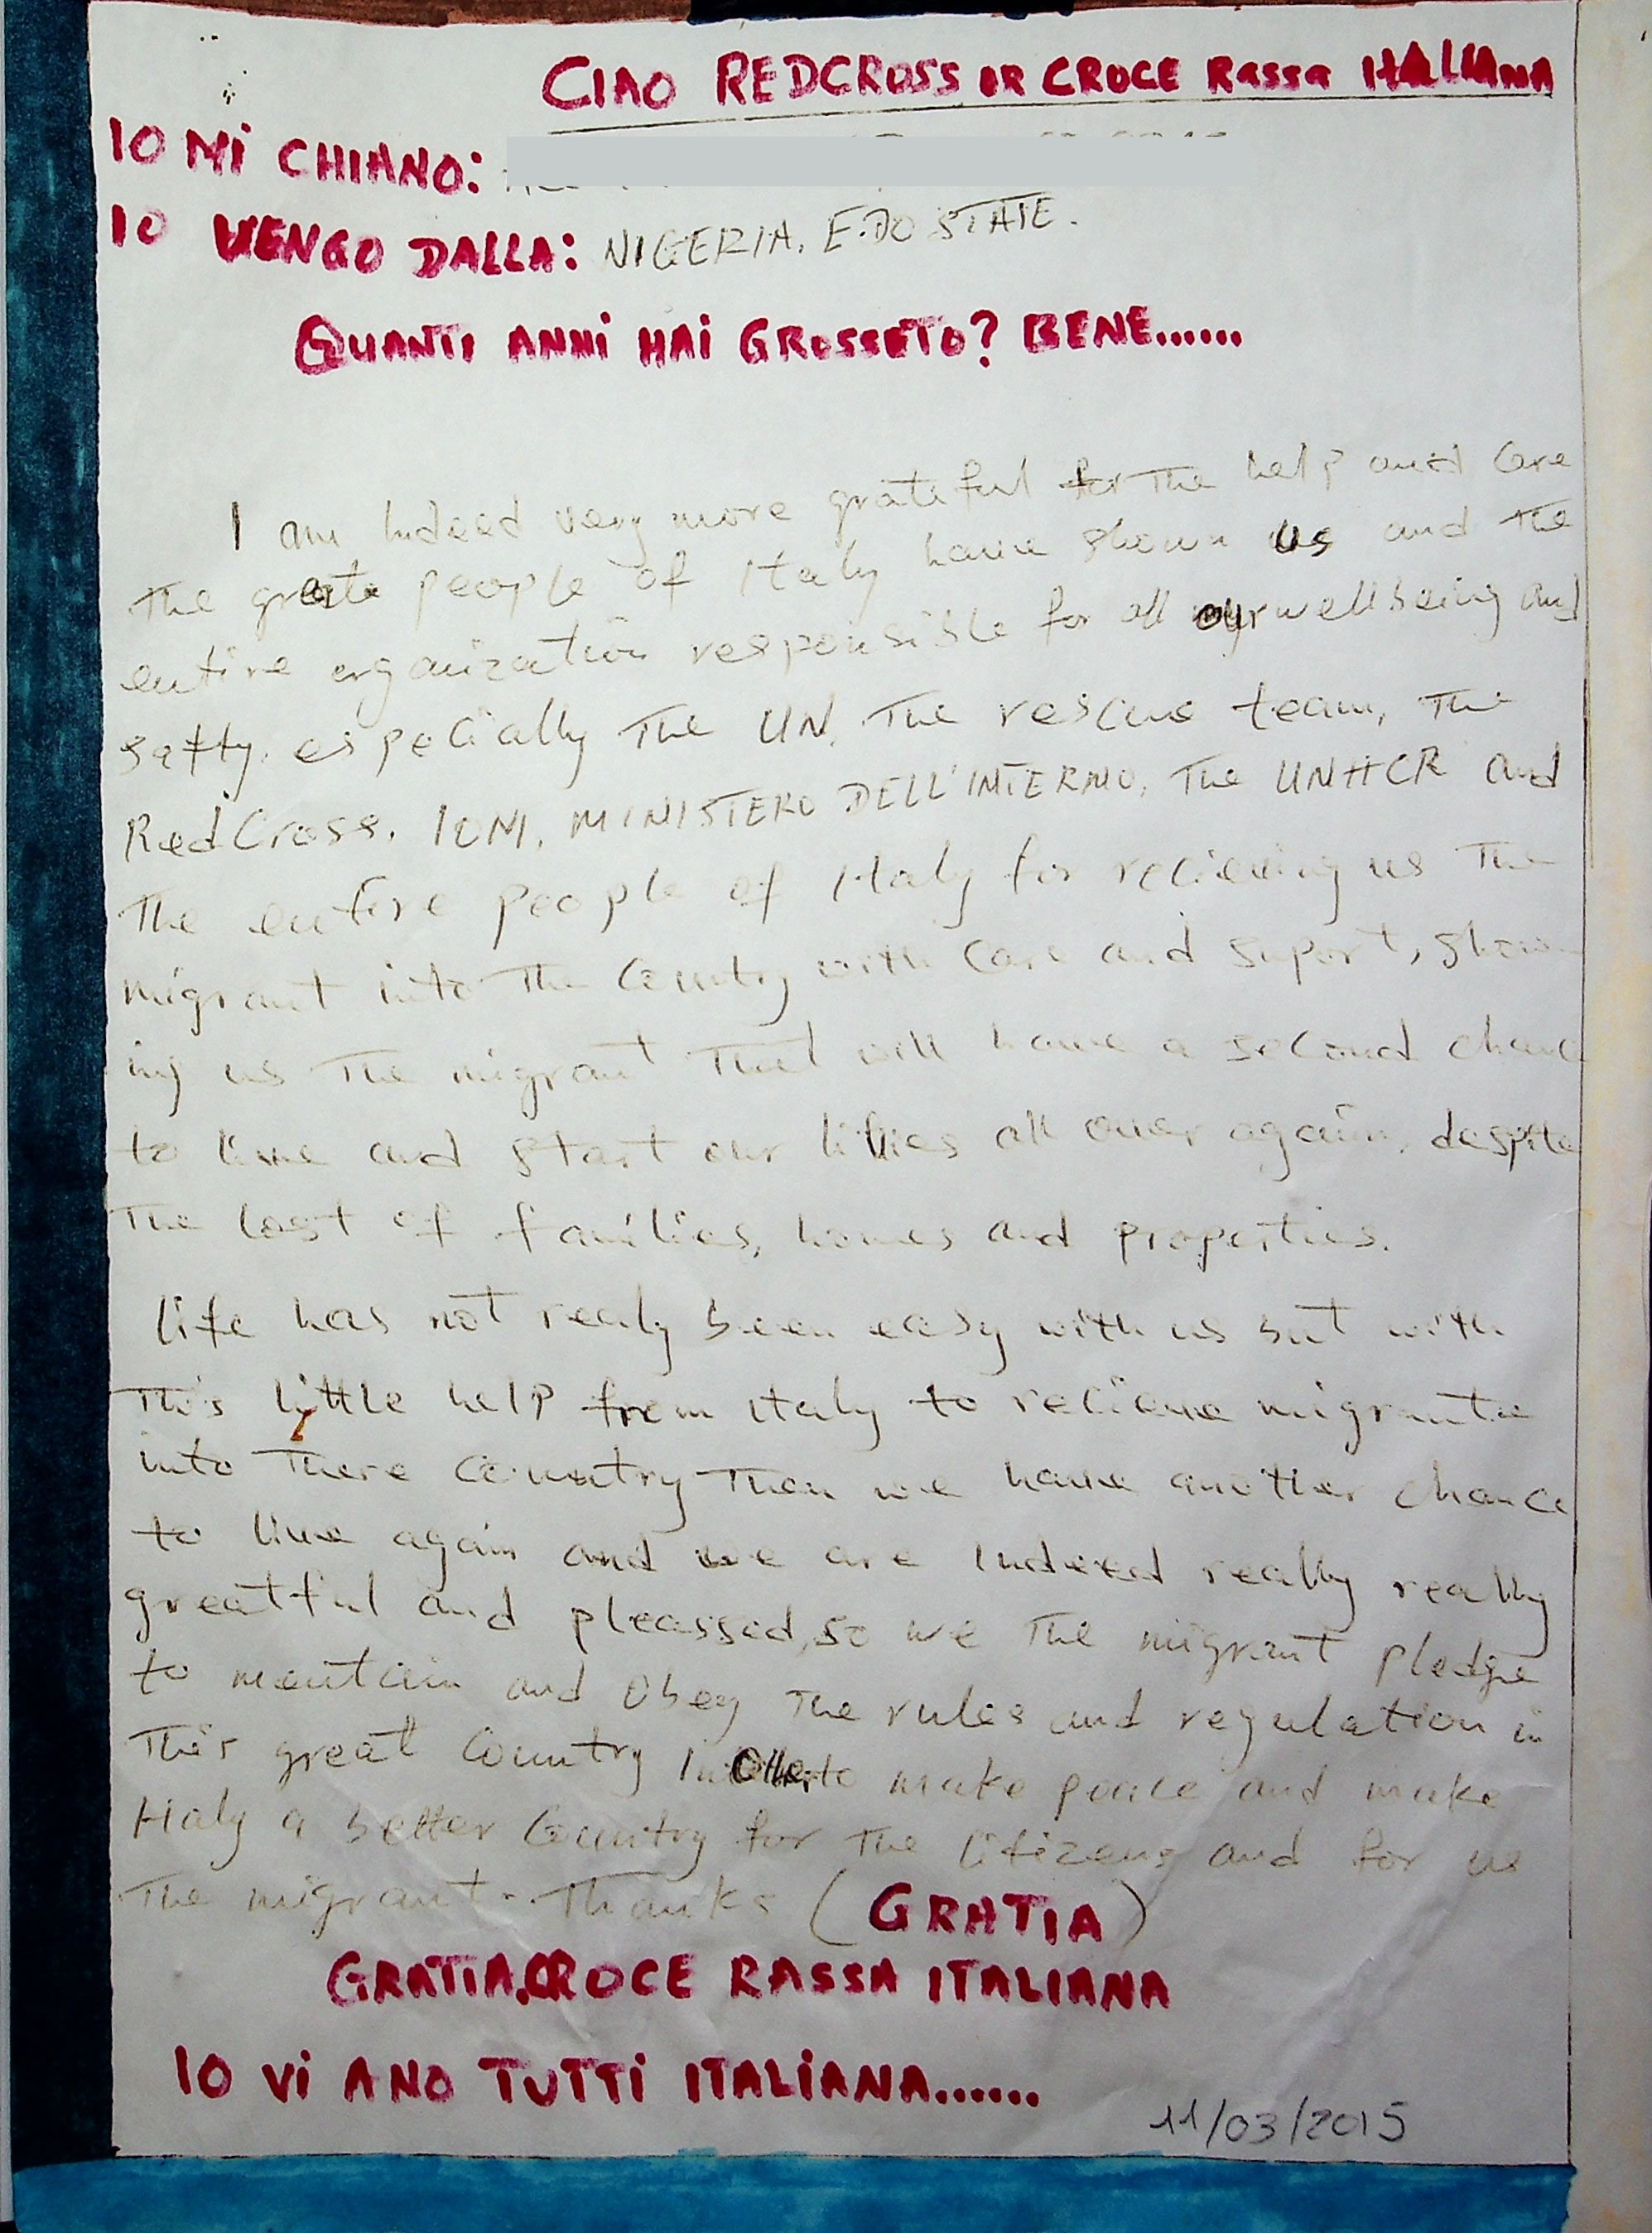 CIAO REDCROSS OR CROCE RASSA ITALIANA
IO MI CHIAMO:
IO VENGO DALLA: NIGERIA. EDO STATE.
QUANTI ANNI HAI GROSSETO? BENE......
I am Indeed very more grateful for the help and care
the greate people of Italy have shown us and the
entire organization responsible for all our wellbeing and
safty. especially the UN, the rescue team, the
Red Cross. IOM. MINISTERO DELL'INTERNO, The UNHCR and
The entire people of Italy for recieving us the
migrant into the Country with Care and suport, show
ing us the migrant that will have a second chanc
to live and start our lives all over again. despite
the lost of families, homes and properties.
life has not realy been easy with us but with
this little help from Italy to recieve migrante
into there Country then we have another chance
to live again and we are Indeed really really
greatful and pleassed, so we the migrant pledge
to mentain and obey the rules and regulation in
this great Country In to make peace and make
Italy a better Country for the Citizens and for us
the migrant.. Thanks (GRATIA)
GRATIA, CROCE RASSA ITALIANA
IO VI AMO TUTTI ITALIANA......
11/03/2015